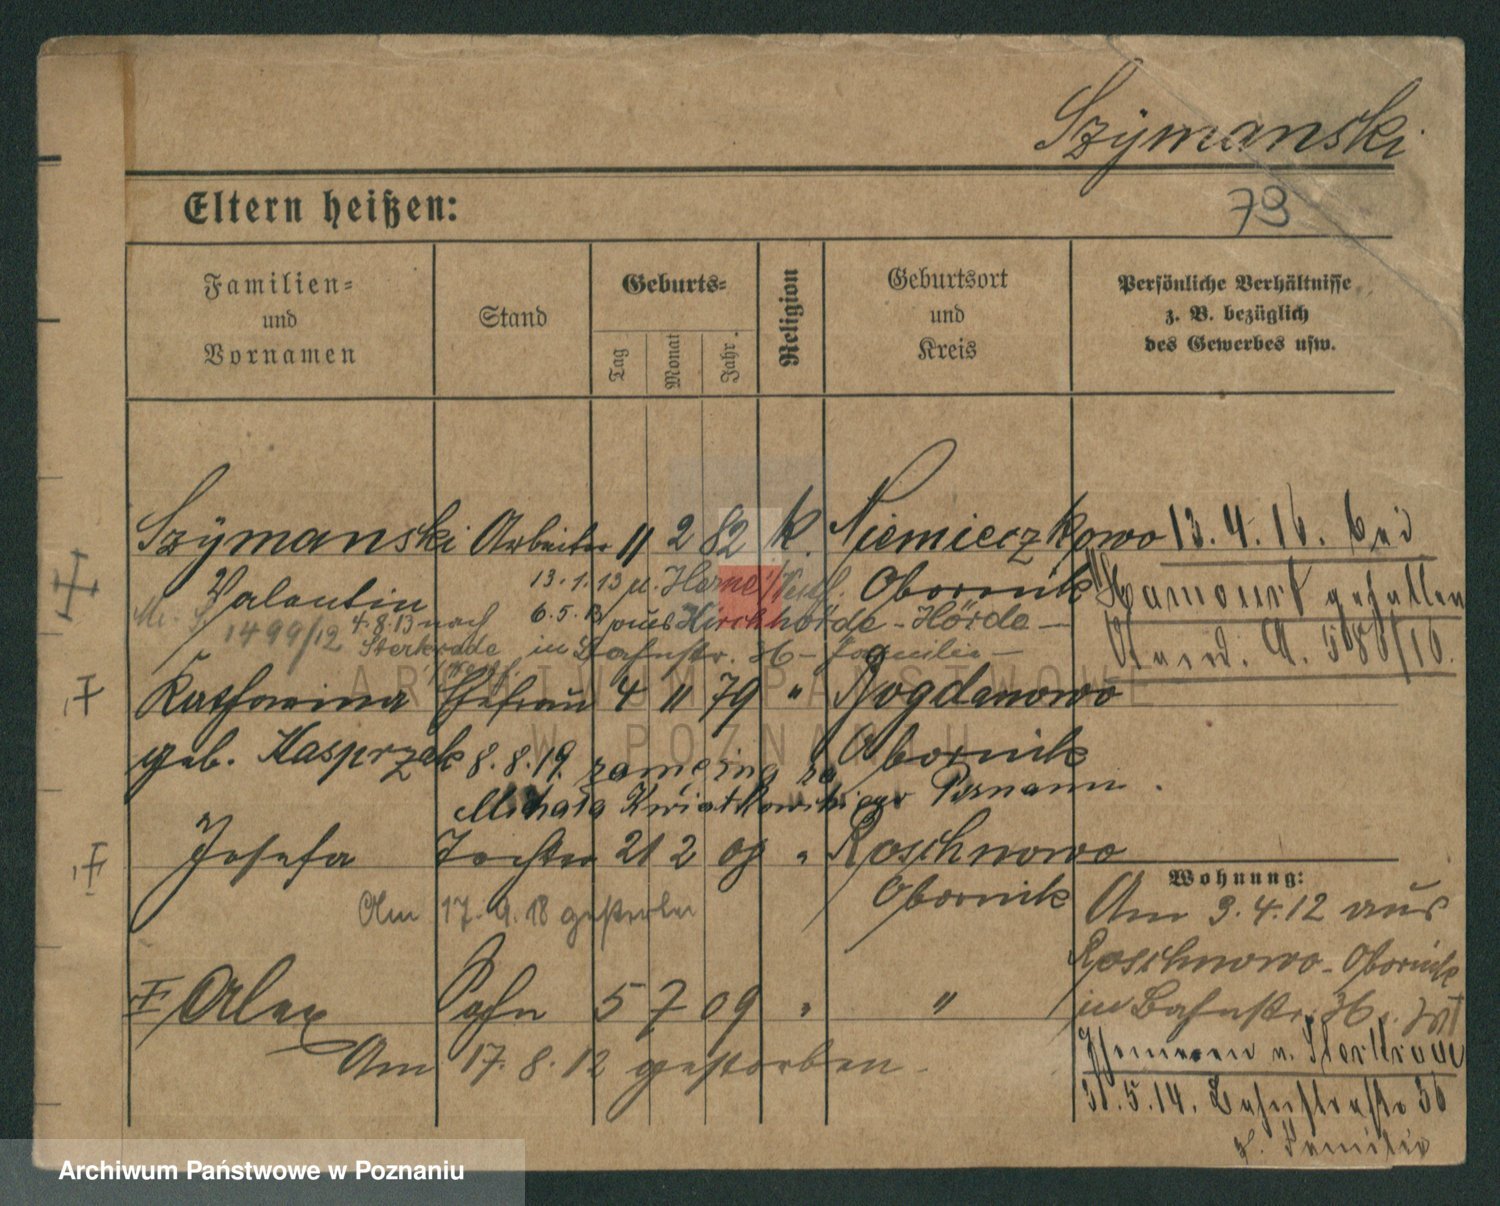 Szÿmanski
79
Eltern heißen:
Familien- und Vornamen
Stand
Geburts-
Tag
Monat
Jahr.
Religion
Geburtsort und Kreis
Persönliche Verhältnisse
z. B. bezüglich
des Gewerbes usw.
Szÿmanski Arbeiter 11 2 82 k. Niemieczkowo
Valentin Obornik
13.4.16. bei
gefallen
13.1.13 n. Herne/Westf.
6.5.13 aus Kirchhörde - Hörde -
in Bahnstr. 36 - Familie -
1499/12 4.8.13 nach
Sterkrade
Katharina Ehefrau 4 11 79 " Bogdanowo
geb. Kasprzak Obornik
8.8.19. zamęing za
Michała Kwiatkowskiego Poznań.
Josefa Tochter 21 2 09 " Roschnowo
Obornik
Am 17.9.18 gestorben
Alex Sohn 5 7 09 " "
Am 17.8.12 gestorben.
Wohnung:
Am 3.4.12 aus
Roschnowo - Obornik
in Bahnstr. 36.
v. Sterkrade
31.5.14. Bahnstraße 36
z. Familie
ARCHIWUM PAŃSTWOWE
W POZNANIU
Archiwum Państwowe w Poznaniu